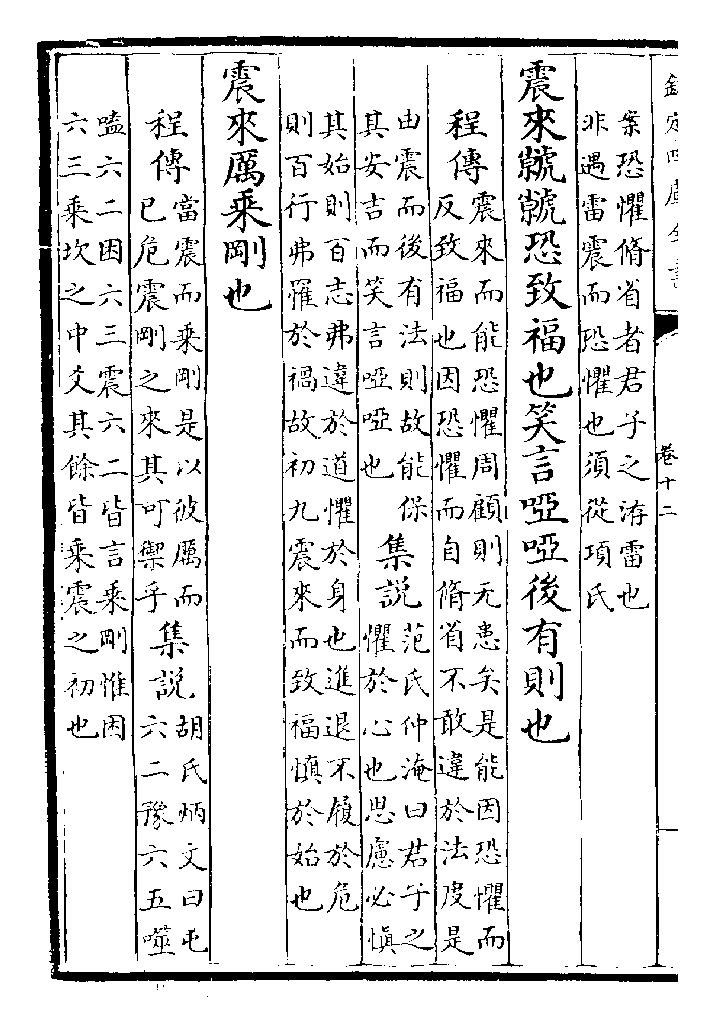 欽定四庫全書
卷十二
案恐懼脩省者君子之洊雷也
非遇雷震而恐懼也須從項氏
震來虩虩恐致福也笑言啞啞後有則也
程傳
震來而能恐懼周顧則无患矣是能因恐懼而
反致福也因恐懼而自脩省不敢違於法度是
由震而後有法則故能保
其安吉而笑言啞啞也
集説
范氏仲淹曰君子之
懼於心也思慮必慎
其始則百志弗違於道懼於身也進退不履於危
則百行弗罹於禍故初九震來而致福慎於始也
震來厲乘剛也
程傳
當震而乘剛是以彼厲而
己危震剛之來其可禦乎
集説
胡氏炳文曰屯
六二豫六五噬
嗑六二困六三震六二皆言乘剛惟困
六三乘坎之中爻其餘皆乘震之初也